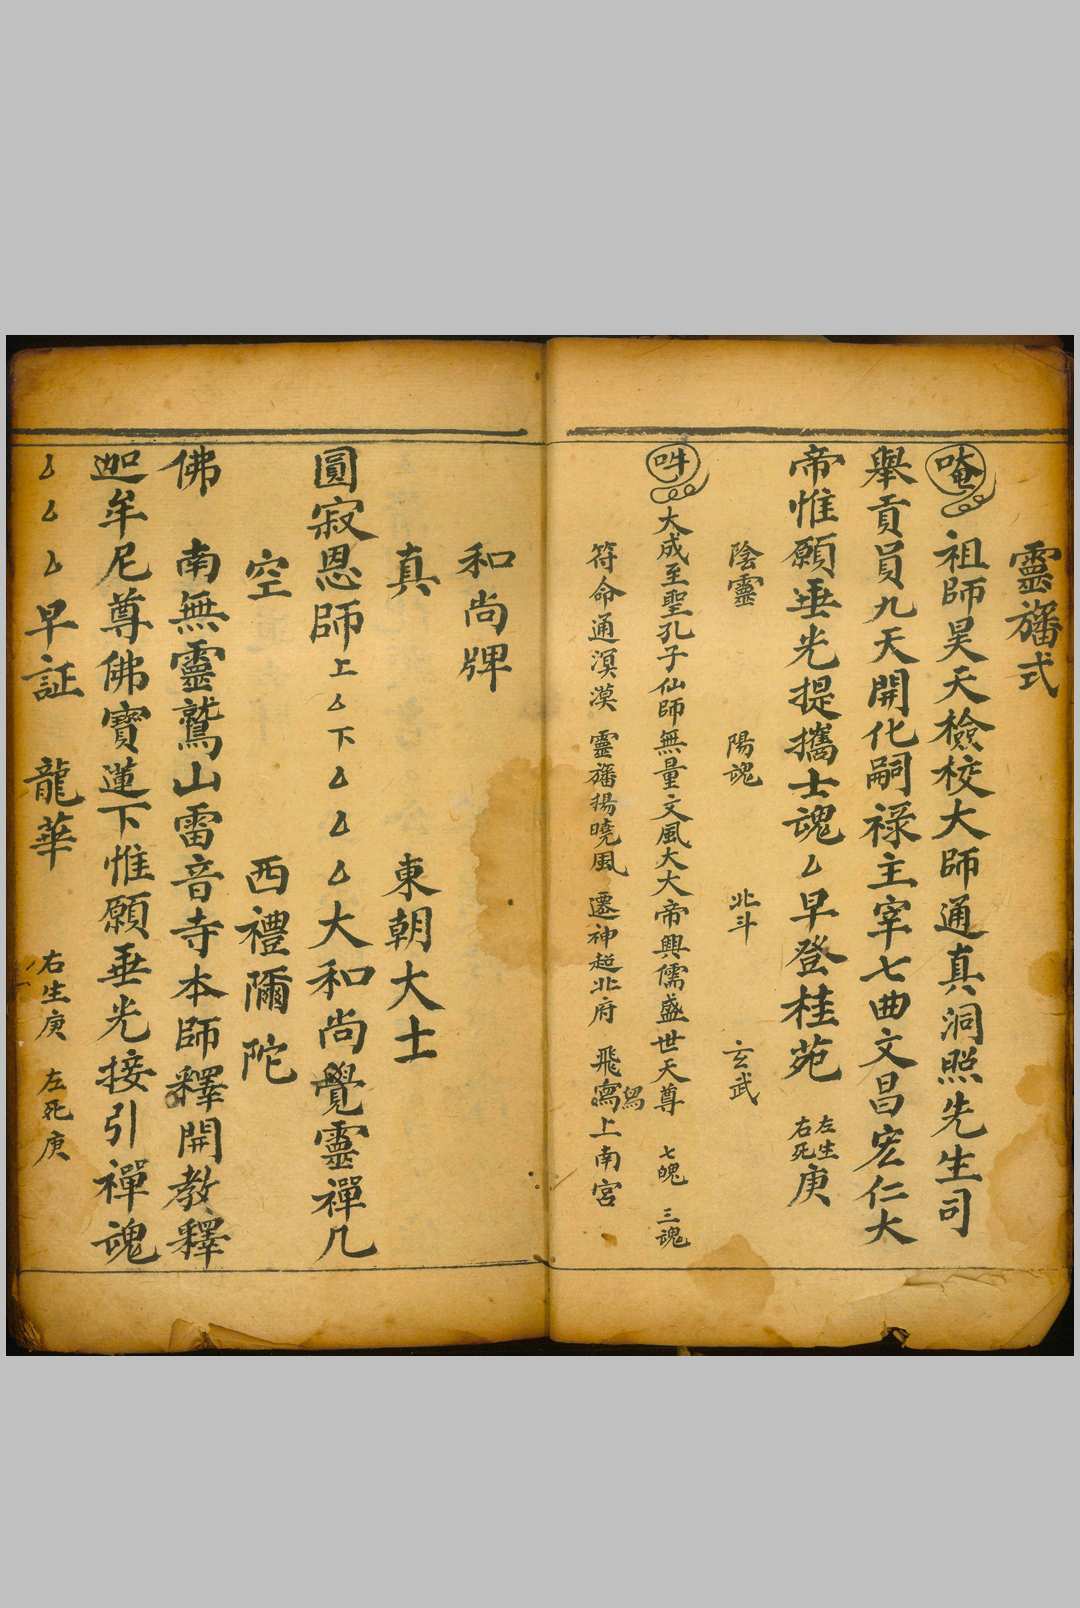 靈旛式
唵 祖師昊天檢校大師通真洞照先生司
舉貢員九天開化嗣祿主宰七曲文昌宏仁大
帝惟願垂光提攜士魂厶早登桂苑 左生右死庚
陰靈 陽魂 北斗 玄武
吽 大成至聖孔子仙師無量文風大大帝興儒盛世天尊 七魄 三魂
符命通溟漠 靈旛揚曉風 遷神超北府 飛寫上南宮
和尚牌
真 東朝大士
圓寂恩師上厶下厶厶厶大和尚覺靈禪几
空 西禮彌陀
佛 南無靈鷲山雷音寺本師釋開教釋
迦牟尼尊佛寶蓮下惟願垂光接引禪魂
厶厶厶早証 龍華 右生庚 左死庚